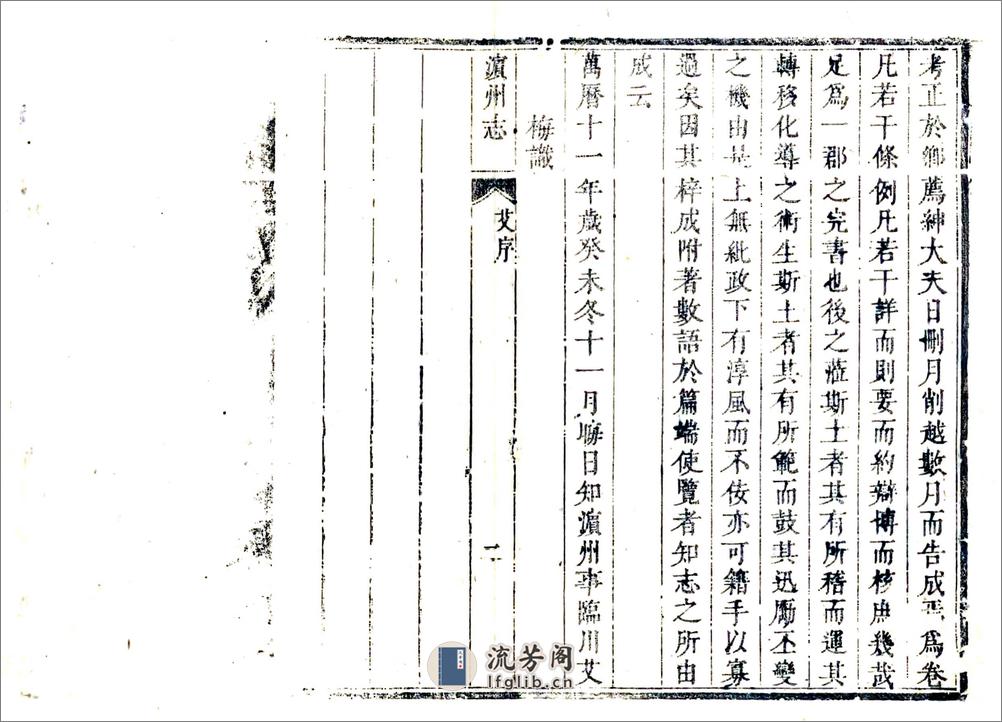 考正於鄉薦紳大夫日刪月削越數月而告成焉為卷
凡若干條例凡若干詳而則要而約辯博而核庶幾哉
足爲一郡之完書也後之蒞斯土者其有所稽而運其
轉移化導之術生斯土者其有所範而鼓其迅勵丕變
之機由是上無紕政下有淳風而不佞亦可籍手以寡
過矣因其梓成附著數語於篇端使覽者知志之所由
成云
萬曆十一年歲癸未冬十一月晦日知濵州事臨川艾
梅識
濵州志
艾序
二
流芳阁
lfglib.cn